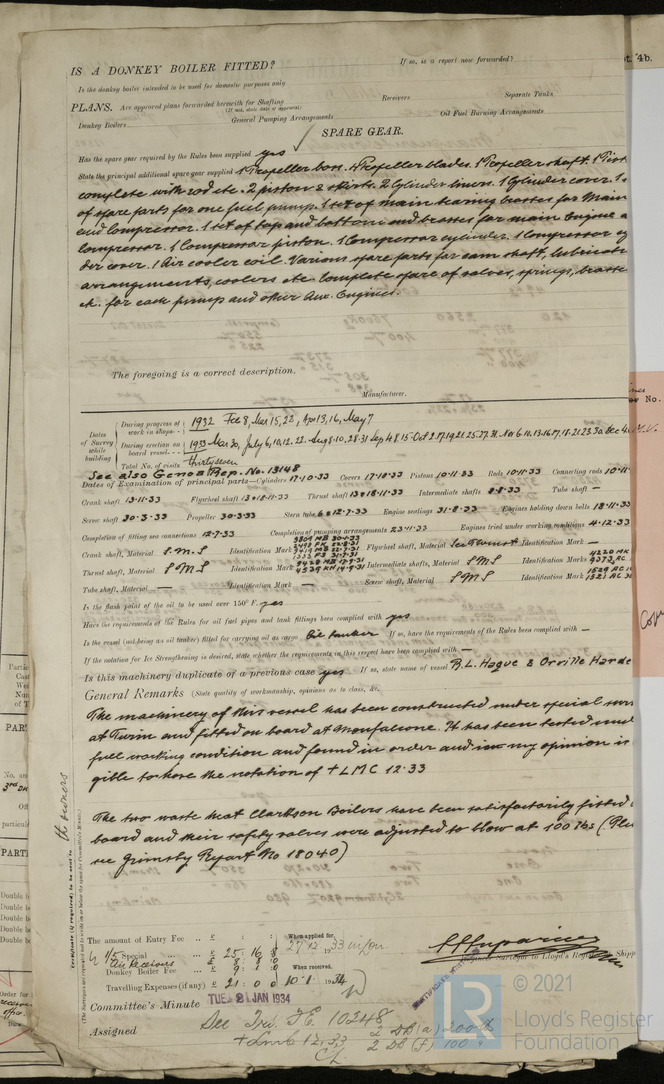 IS A DONKEY BOILER FITTED? If so, is a report now forwarded?
Is the donkey boiler intended to be used for domestic purposes only
PLANS. Are approved plans forwarded herewith for Shafting Receivers Separate Tanks
(If not, state date of approval)
Donkey Boilers General Pumping Arrangements Oil Fuel Burning Arrangements
SPARE GEAR.
Has the spare gear required by the Rules been supplied yes
State the principal additional spare gear supplied 1 Propeller boss. 4 Propeller blades. 1 Propeller shaft. 1 Pist
complete with rod etc. 2 piston & skirts. 2 Cylinder liners. 1 Cylinder cover. 1
of spare parts for one fuel pump. 1 set of main bearing brasses for Main
and compressor. 1 set of top and bottom end brasses for main Engine a
compressor. 1 Compressor piston. 1 Compressor cylinder. 1 Compressor cy
der cover. 1 Air cooler coil. Various spare parts for cam shaft, lubricati
arrangements, coolers etc complete spare of valves, springs, brasse
etc. for each pump and other Aux. Engines.
The foregoing is a correct description.
Manufacturer.
Dates of Survey while building
During progress of work in shops 1932 Feb 8, Mar 15, 22, Apr 13, 16, May 7
During erection on board vessel 1933 Mar 30, July 6, 10, 12, 22 Aug 8, 10, 28, 31 Sep 4, 8, 15 Oct 2, 17, 19, 21, 25, 27, 31 Nov 6, 10, 13, 16, 17, 18, 21, 23, 30 Dec 4
Total No. of visits thirty seven
See also Genoa Rep. No. 13148
Dates of Examination of principal parts—Cylinders 17.10.33 Covers 17.10.33 Pistons 10.11.33 Rods 10.11.33 Connecting rods 10.11
Crank shaft 13.11.33 Flywheel shaft 13 & 18.11.33 Thrust shaft 13 & 18.11.33 Intermediate shafts 8.8.33 Tube shaft —
Screw shaft 30.3.33 Propeller 30.3.33 Stern tube 6 & 12.7.33 Engine seatings 31.8.33 Engines holding down bolts 18.11.33
Completion of fitting sea connections 12.7.33 Completion of pumping arrangements 23.11.33 Engines tried under working conditions 4.12.33
Crank shaft, Material S.M.S Identification Mark Flywheel shaft, Material See Thrust Identification Mark —
Thrust shaft, Material SMS Identification Mark Intermediate shafts, Material SMS Identification Marks
Tube shaft, Material — Identification Mark — Screw shaft, Material SMS Identification Mark
Is the flash point of the oil to be used over 150° F. yes
Have the requirements of the Rules for oil fuel pipes and tank fittings been complied with yes
Is the vessel (not being an oil tanker) fitted for carrying oil as cargo Oil tanker If so, have the requirements of the Rules been complied with —
If the notation for Ice Strengthening is desired, state whether the requirements in this respect have been complied with —
Is this machinery duplicate of a previous case yes If so, state name of vessel B.L. Hague & Orville Harde
General Remarks (State quality of workmanship, opinions as to class, &c.
The machinery of this vessel has been constructed under special surv
at Turin and fitted on board at Monfalcone. It has been tested und
full working condition and found in order and in my opinion is
gible to have the notation of + LMC 12.33
The two waste heat Clarkson Boilers have been satisfactorily fitted
board and their safety valves were adjusted to blow at 100 lbs (Ple
see Grimsby Report No 18040)
The amount of Entry Fee .. £ : :
4/5 Special £ 25 : 16 : 8
Air Receivers
Donkey Boiler Fee £
Travelling Expenses (if any) £ 21 : 0 : 0
When applied for, 27.12.1933
When received, 10.1.1934
Surveyor to Lloyd's Register
Committee's Minute TUE. JAN 1934
Assigned See Tri. F.E. 10248
+ Lmc 12.33 2 DB (a) 200 lb
CL 2 DB (F) 100 "
the owners
© 2021
Lloyd's Register
Foundation
LR
t. 4b.
No.
Cop
PART
PARTI
Double b
Double b
Double b
Double b